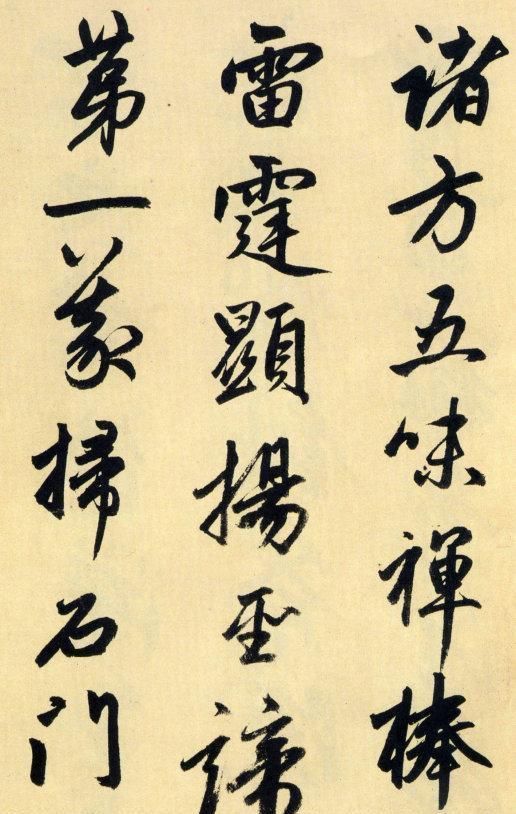 諸方五味禪棒
雷霆顯揚聖諦
第一義掃石門